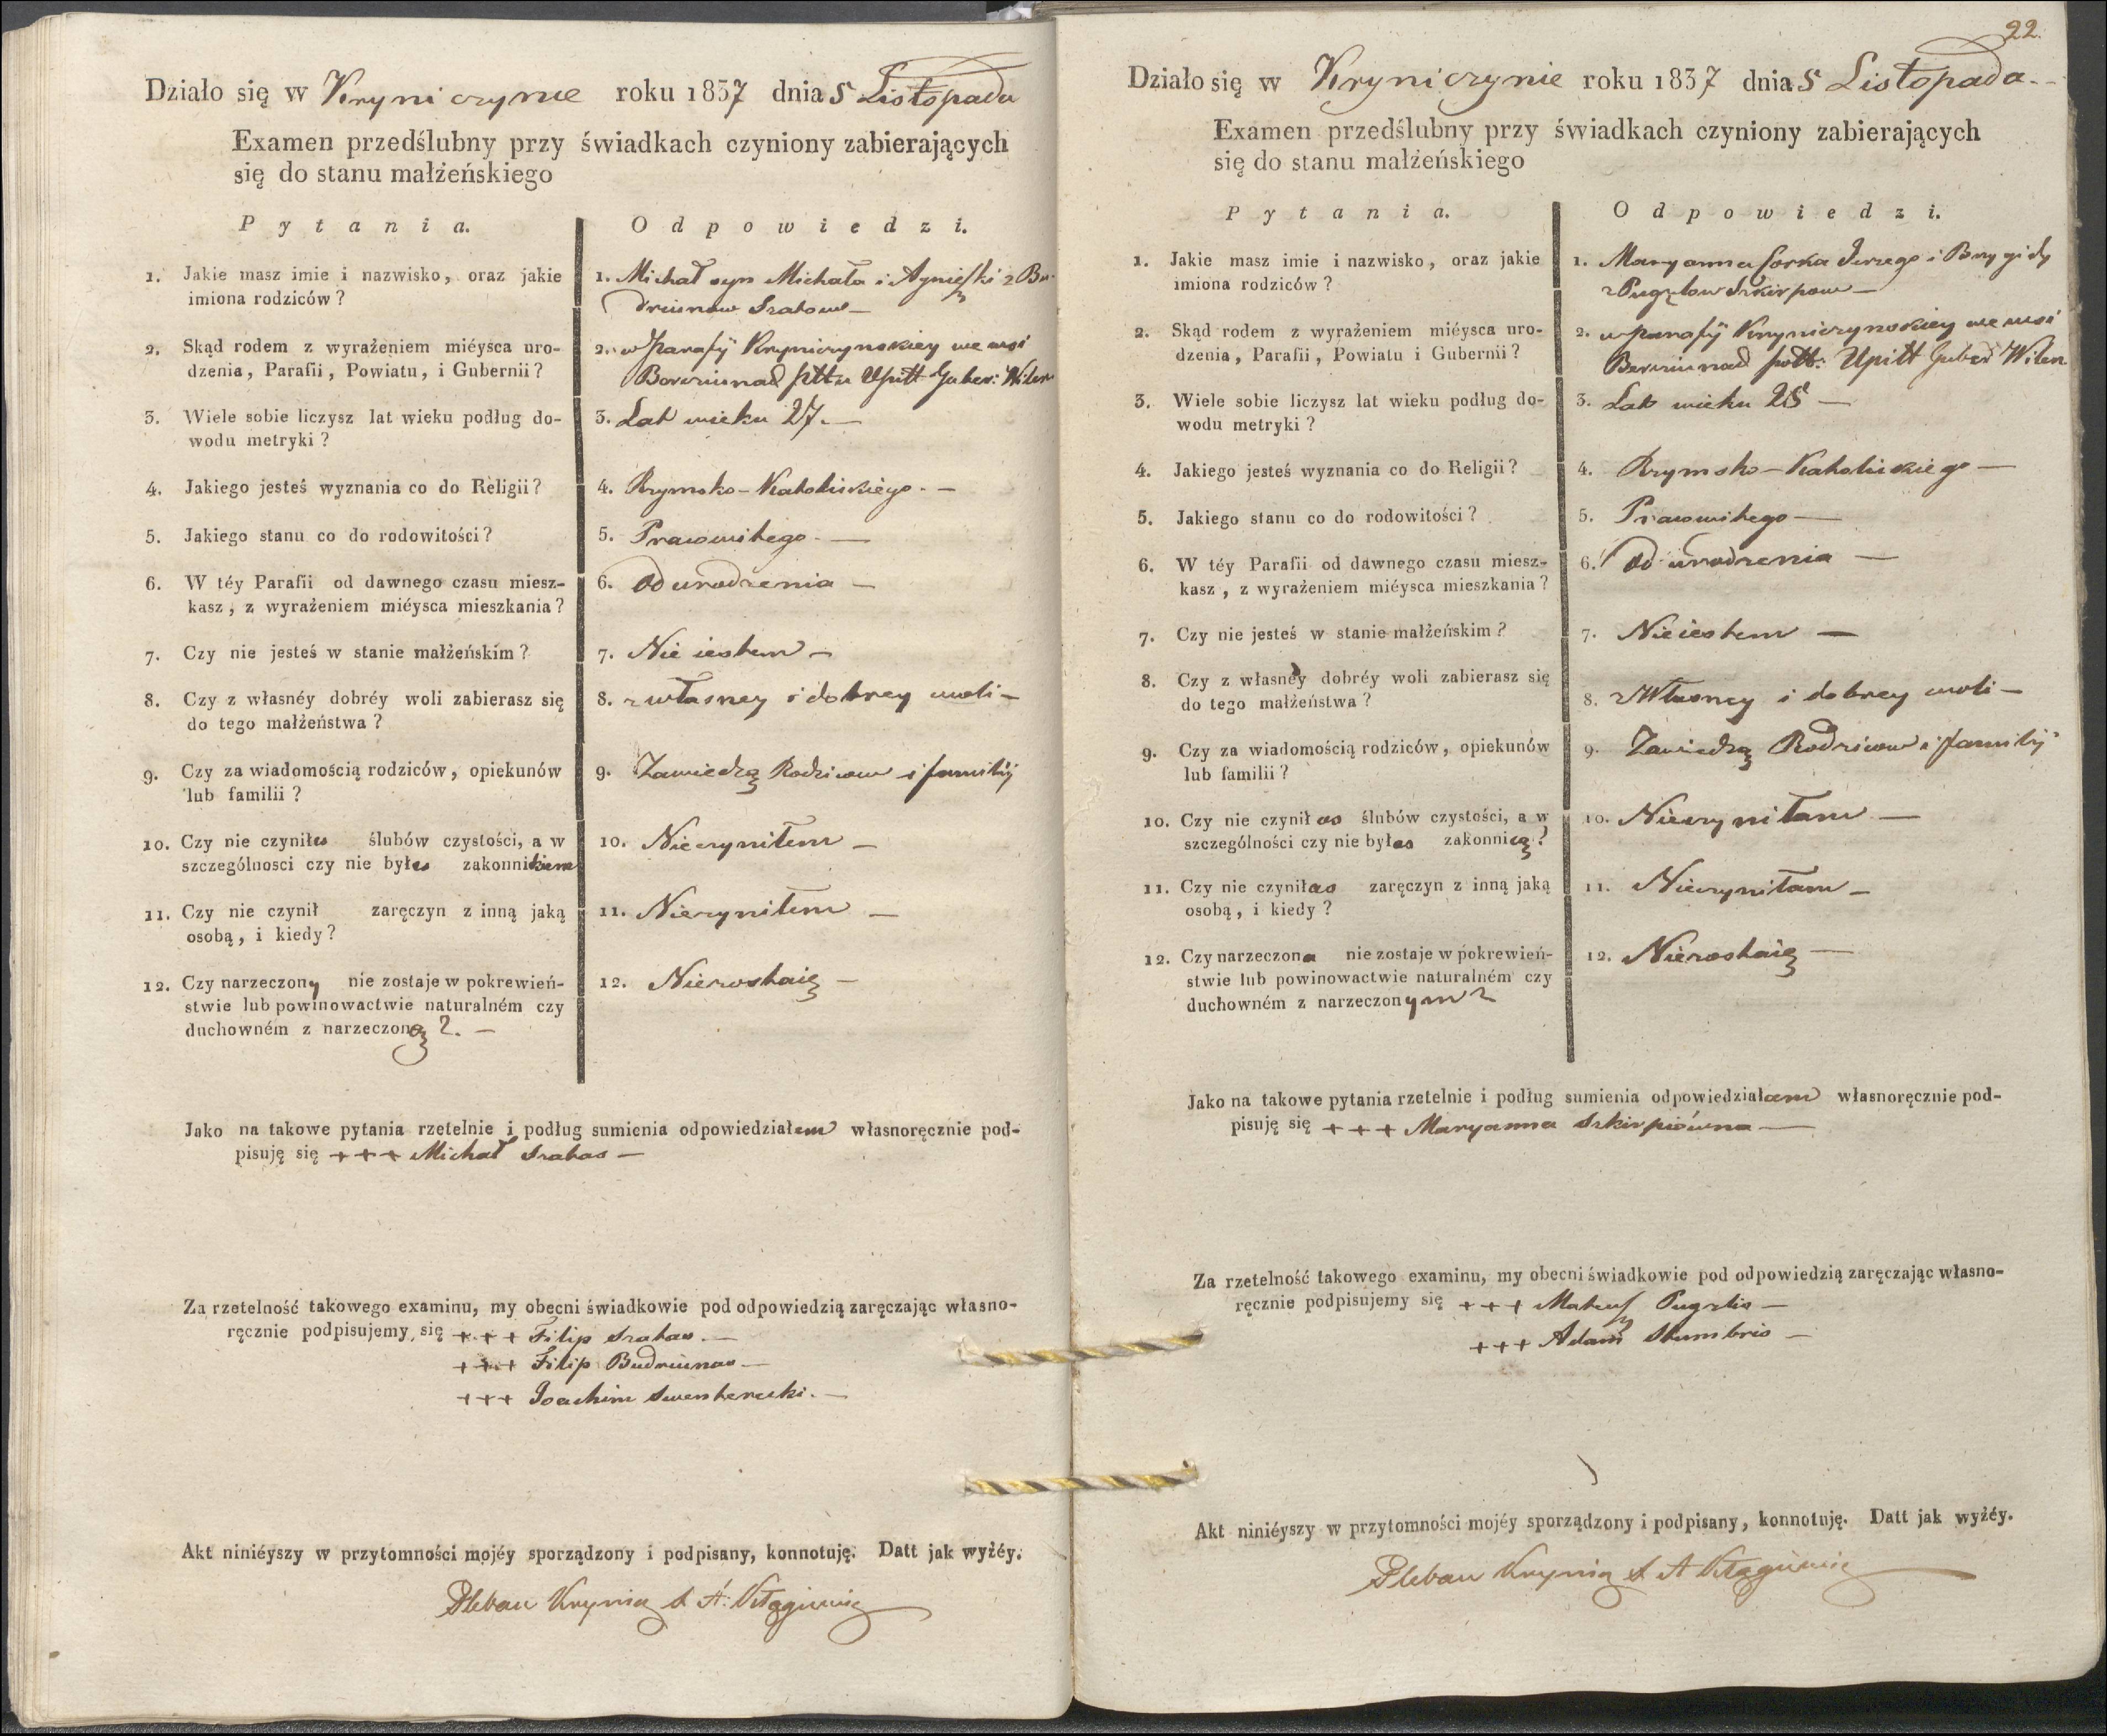 Działo się w Kryniczynie roku 1837 dnia 5 Listopada
Examen przedślubny przy świadkach czyniony zabierających
się do stanu małżeńskiego
Pytania. Odpowiedzi.
1. Jakie masz imie i nazwisko, oraz jakie
imiona rodziców?
1. Michał syn Michała i Agnieszki z Bu-
driunow Szatow —
2. Skąd rodem z wyrażeniem miéysca uro-
dzenia, Parafii, Powiatu, i Gubernii?
2. w Parafij Kryniczynskiey we wsi
Berciunad pttu Upitt Guber: Wilen
3. Wiele sobie liczysz lat wieku podług do-
wodu metryki?
3. Lat wieku 27. —
4. Jakiego jesteś wyznania co do Religii?
4. Rzymsko-Katolickiego. —
5. Jakiego stanu co do rodowitości?
5. Prawowitego. —
6. W téy Parafii od dawnego czasu miesz-
kasz, z wyrażeniem miéysca mieszkania?
6. Od urodzenia —
7. Czy nie jesteś w stanie małżeńskim?
7. Nie iestem —
8. Czy z własnéy dobréy woli zabierasz się
do tego małżeństwa?
8. z własney i dobrey woli —
9. Czy za wiadomością rodziców, opiekunów
lub familii?
9. Zawiedzą Rodzicow i familij
10. Czy nie czyniłes ślubów czystości, a w
szczególnosci czy nie byłes zakonnikiem
10. Nieczyniłem —
11. Czy nie czynił zaręczyn z inną jaką
osobą, i kiedy?
11. Nieczyniłem —
12. Czy narzeczony nie zostaje w pokrewień-
stwie lub powinowactwie naturalném czy
duchowném z narzeczoną?. —
12. Niezostaię —
Jako na takowe pytania rzetelnie i podług sumienia odpowiedziałem własnoręcznie pod-
pisuję się +++ Michał Szatas —
Za rzetelność takowego examinu, my obecni świadkowie pod odpowiedzią zaręczając własno-
ręcznie podpisujemy się +++ Filip Szatas. —
+++ Filip Budriunas —
+++ Joachim Swenterecki. —
Akt niniéyszy w przytomności mojéy sporządzony i podpisany, konnotuję. Datt jak wyżéy.
Pleban Krynicz X A. Kłągiewicz
22.
Działo się w Kryniczynie roku 1837 dnia 5 Listopada. —
Examen przedślubny przy świadkach czyniony zabierających
się do stanu małżeńskiego
Pytania. Odpowiedzi.
1. Jakie masz imie i nazwisko, oraz jakie
imiona rodziców?
1. Maryanna Corka Jerzego i Brygidy
z Pugzlow Szkirpow —
2. Skąd rodem z wyrażeniem miéysca uro-
dzenia, Parafii, Powiatu i Gubernii?
2. w parafij Kryniczynskiey we wsi
Berciunad pott: Upitt Guber Wilen
3. Wiele sobie liczysz lat wieku podług do-
wodu metryki?
3. Lat wieku 25 —
4. Jakiego jesteś wyznania co do Religii?
4. Rzymsko-Katolickiego —
5. Jakiego stanu co do rodowitości?
5. Prawowitego —
6. W téy Parafii od dawnego czasu miesz-
kasz, z wyrażeniem miéysca mieszkania?
6. Od urodzenia —
7. Czy nie jesteś w stanie małżeńskim?
7. Nieiestem —
8. Czy z własnéy dobréy woli zabierasz się
do tego małżeństwa?
8. z Własney i dobrey woli —
9. Czy za wiadomością rodziców, opiekunów
lub familii?
9. Zawiedzą Rodzicow i familij
10. Czy nie czyniłas ślubów czystości, a w
szczególności czy nie byłas zakonnicą?
10. Nieczyniłam —
11. Czy nie czyniłas zaręczyn z inną jaką
osobą, i kiedy?
11. Nieczyniłam —
12. Czy narzeczona nie zostaje w pokrewień-
stwie lub powinowactwie naturalném czy
duchowném z narzeczonym?
12. Niezostaię —
Jako na takowe pytania rzetelnie i podług sumienia odpowiedziałam własnoręcznie pod-
pisuję się +++ Maryanna Szkirpiówna —
Za rzetelność takowego examinu, my obecni świadkowie pod odpowiedzią zaręczając własno-
ręcznie podpisujemy się +++ Mateusz Pugzlis —
+++ Adam Stumbris —
Akt niniéyszy w przytomności mojéy sporządzony i podpisany, konnotuję. Datt jak wyżéy.
Pleban Krynicz X A Kłągiewicz